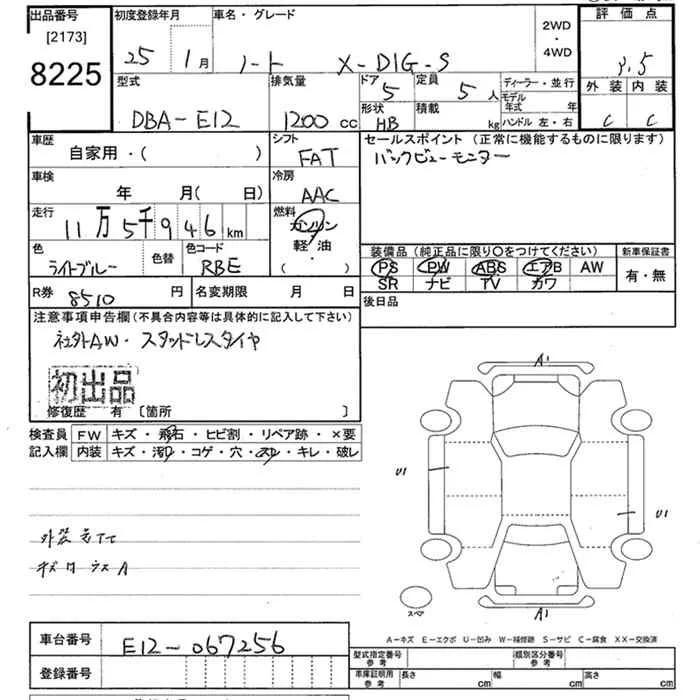 出品番号 初度登録年月 車名・グレード 評価点
[2173] 2WD
8225 25 1月 ノート X-DIG-S ・ 3.5
4WD
型式 排気量 ドア 定員 ディーラー・並行 外装 内装
DBA-E12 1200cc 5 5人 モデル年式 年
形状 積載
HB kg ハンドル 左・右 C C
車歴 シフト セールスポイント (正常に機能するものに限ります)
自家用・( ) FAT バックビューモニター
車検 冷房
年 月( 日) AAC
走行 燃料
11万5千946km ガソリン
軽・油
( ・ )
色 色替 色コード 装備品 (純正品に限り○をつけてください) 新車保証書
ライトブルー RBE PS PW ABS エアB AW 有・無
SR ナビ TV カワ
R券 8510円 名変期限 月 日 後日品
注意事項申告欄(不具合内容等は具体的に記入して下さい)
社外AW・スタッドレスタイヤ
初出品
修復歴 有 〔箇所 〕
検査員 FW キズ・飛石・ヒビ割・リペア跡・×要
記入欄 内装 キズ・汚れ・コゲ・穴・スレ・キレ・破レ
A1
U1
U1
A1
スペア
外装
A
A-キズ E-エクボ U-凹み W-補修跡 S-サビ C-腐食 XX-交換済
車台番号 E12-067256
登録番号
型式指定番号 参考 類別区分番号 参考
車庫証明用 参考 長さ cm 幅 cm 高さ cm